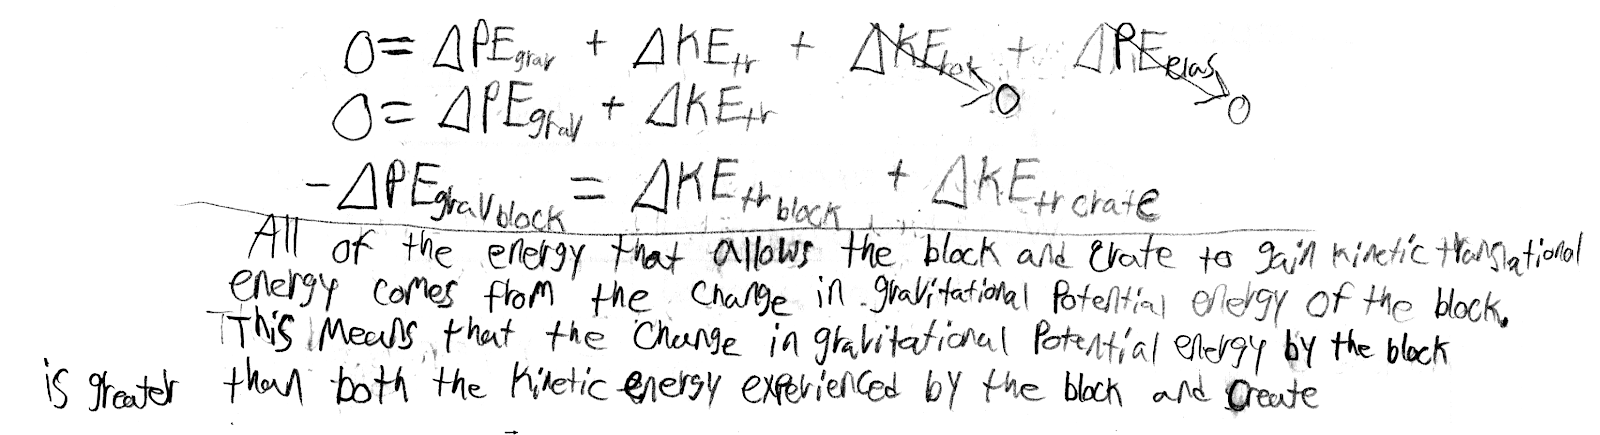 0 = ΔPE_grav + ΔKE_tr + ΔKE_rot + ΔPE_elas
0 0
0 = ΔPE_grav + ΔKE_tr
-ΔPE_grav block = ΔKE_tr block + ΔKE_tr crate
All of the energy that allows the block and crate to gain kinetic translational
energy comes from the change in gravitational Potential energy of the block.
This Means that the change in gravitational Potential energy by the block
is greater than both the kinetic energy experienced by the block and Create